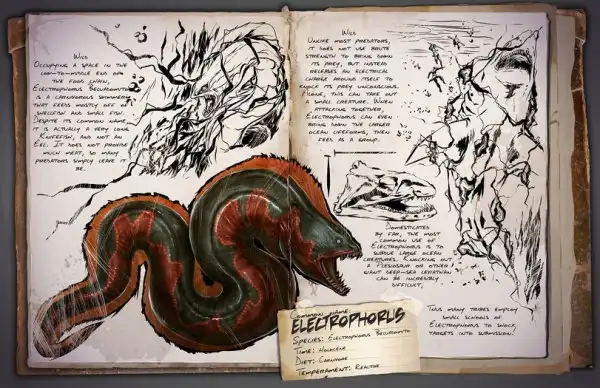 Wild
Occupying a space in the
low-to-middle end of
the food chain,
Electrophorus Beluadomito
is a carnivorous swimmer
that feeds mostly off of
shellfish and small fish.
Despite its common name
it is actually a very long
Knifefish, and not an
Eel. It does not provide
much meat, so many
predators simply leave it
be.
Wild
Unlike most predators,
it does not use brute
strength to bring down
its prey, but instead
releases an electrical
charge around itself to
knock its prey unconscious.
Alone, this can take out
a small creature. When
attacking together,
Electrophorus can even
bring down the larger
ocean lifeforms, then
feed as a group.
Domesticated
By far, the most
common use of
Electrophorus is to
subdue large ocean
creatures. Knocking out
a Plesiosaur or other
giant deep-sea leviathan
can be incredibly
difficult,
Thus many tribes employ
small schools of
Electrophorus to shock
targets into submission.
Common name:
Electrophorus
Species: Electrophorus Beluadomito
Time: Holocene
Diet: Carnivore
Temperament: Reactive